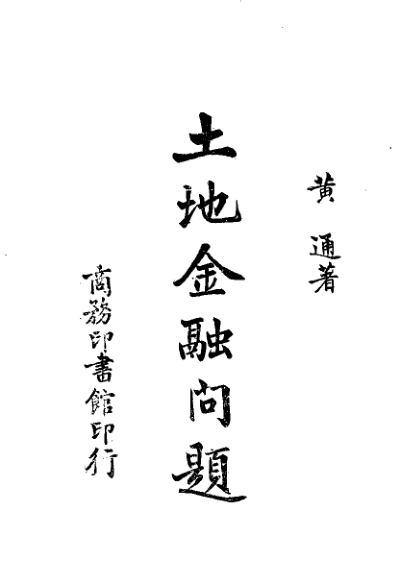 黃通著
土地金融問題
商務印書館印行